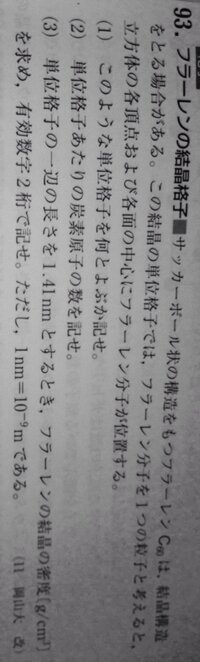 93. フラーレンの結晶格子■サッカーボール状の構造をもつフラーレンC₆₀は、結晶構造
をとる場合がある。この結晶の単位格子では、フラーレン分子を1つの粒子と考えると、
立方体の各頂点および各面の中心にフラーレン分子が位置する。
(1) このような単位格子を何とよぶか記せ。
(2) 単位格子あたりの炭素原子の数を記せ。
(3) 単位格子の一辺の長さを1.41nmとするとき、フラーレンの結晶の密度〔g/cm³〕
を求め、有効数字2桁で記せ。ただし、1nm=10⁻⁹mである。 (11 岡山大 改)